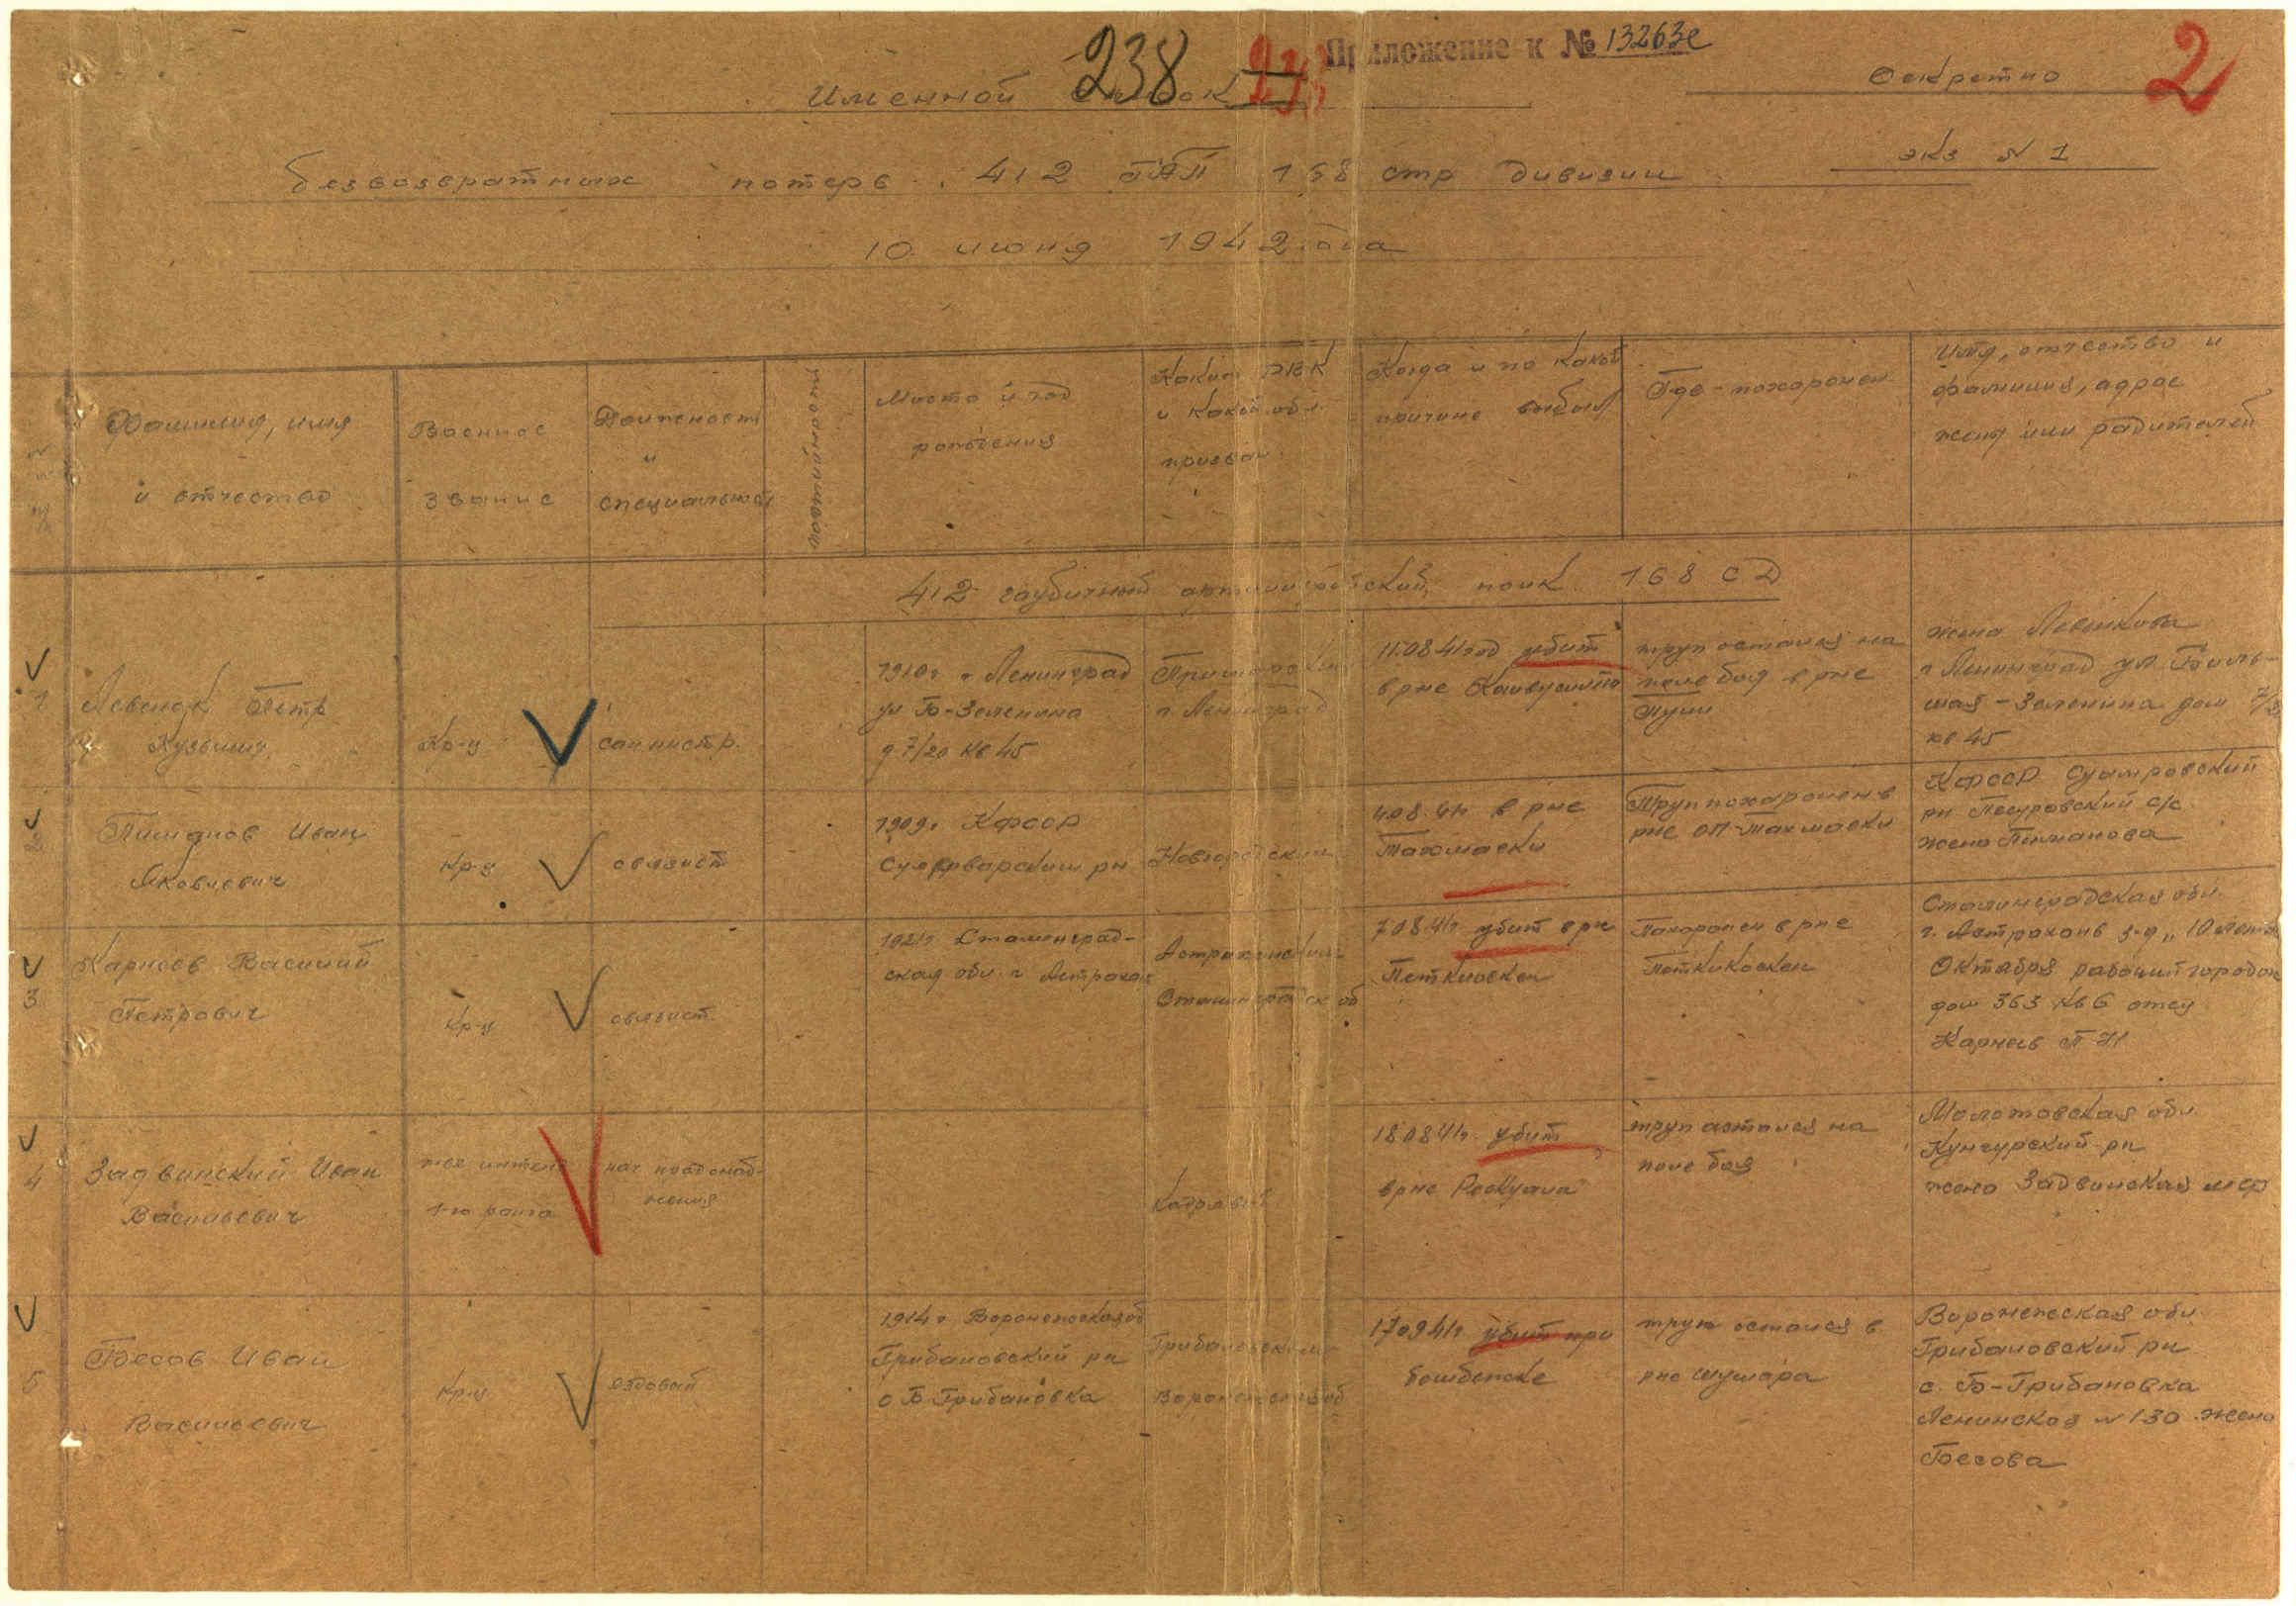 238
Приложение к № 13263с
Секретно
2
Именной список
экз № 1
безвозвратных потерь 412 ГАП 168 стр дивизии
10 июня 1942 года
Фамилия, имя
и отчество
Военное
звание
Должность
и
специальность
партийность
Место и год
рождения
Каким РВК
и какой обл.
призван
Когда и по какой
причине выбыл
Где похоронен
Имя, отчество и
фамилия, адрес
жены или родителей
412 гаубичный артиллерийский полк 168 СД
1
Левенок Петр
Кузьмич
Кр-ц
санинстр.
1910г г Ленинград
ул Б-Зеленина
д 7/20 кв 45
г Ленинград
11.08 41год убит
в рне
труп остался на
поле боя в рне
жена Левенкова
г Ленинград ул Боль-
шая-Зеленина дом
кв 45
2
Пиманов Иван
Яковлевич
Кр-ц
связист
1909г КФССР
рн
4.08.41г в рне
Труп похоронен в
рне
КФССР
рн с/с
жена Пиманова
3
Карнеев Василий
Петрович
Кр-ц
связист
1921г Сталинград-
ская обл. г Астрахань
Астраханским
7.08 41г убит в рн
Похоронен в рне
Сталинградская обл.
г. Астрахань з-д "10 лет
Октября рабочий городок
дом 363 кв 6 отец
Карнеев П
4
Задвинский Иван
Васильевич
1-го ранга
нач продснаб-
жения
Кадровый
18.08 41г. убит
в рне
труп остался на
поле боя
Молотовская обл.
Кунгурский рн
жена Задвинская
5
Бесов Иван
Васильевич
Кр-ц
ездовой
1914г Воронежская об
Грибановский рн
с Б-Грибановка
Грибановским
17.09 41г убит при
бомбежке
труп остался в
рне Шушара
Воронежская обл.
Грибановский рн
с. Б-Грибановка
Ленинская № 130 жена
Бесова